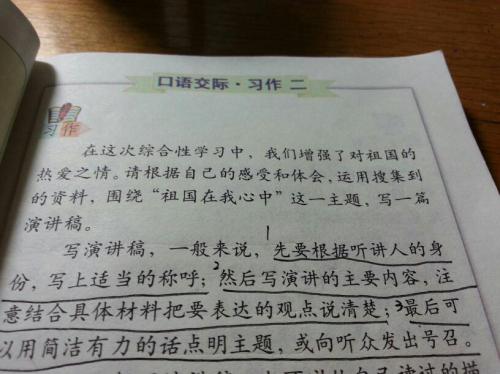 口语交际·习作 二
习作
在这次综合性学习中，我们增强了对祖国的
热爱之情。请根据自己的感受和体会，运用搜集到
的资料，围绕“祖国在我心中”这一主题，写一篇
演讲稿。
1
写演讲稿，一般来说，先要根据听讲人的身
份，写上适当的称呼；2然后写演讲的主要内容，注
意结合具体材料把要表达的观点说清楚；3最后可
以用简洁有力的话点明主题，或向听众发出号召。